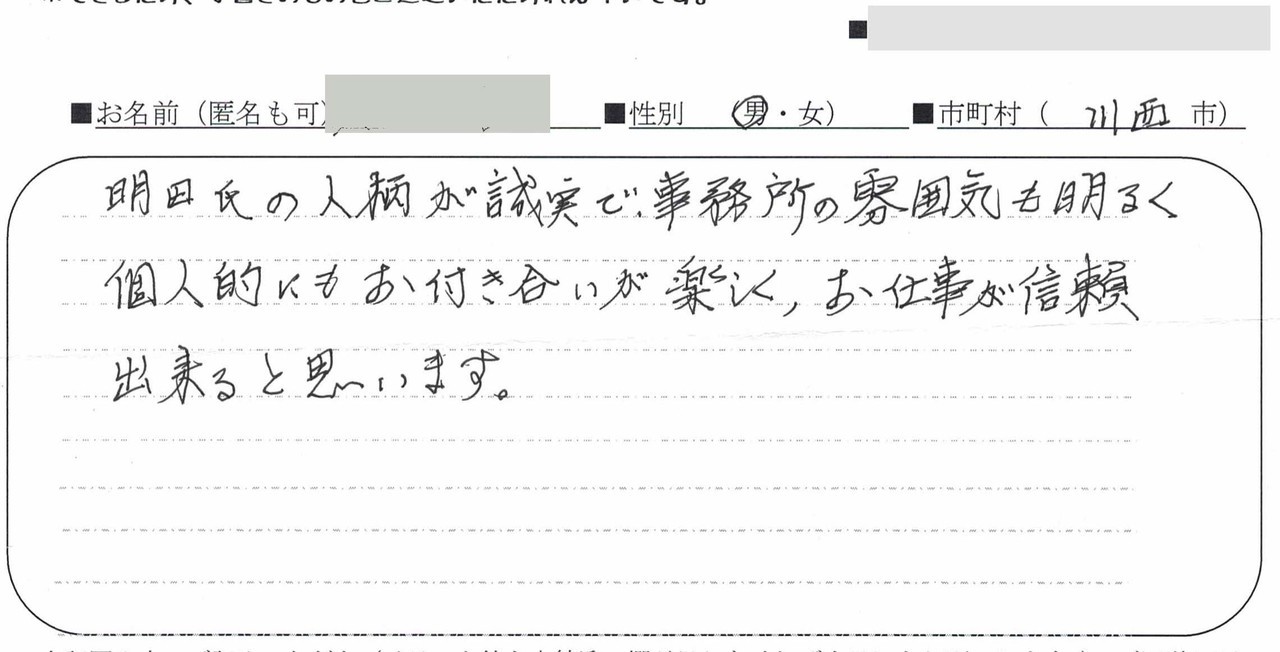 ■お名前（匿名も可）
■性別 （男・女）
■市町村（ 川西 市）
明田氏の人柄が誠実で、事務所の雰囲気も明るく
個人的にもお付き合いが楽しく、お仕事が信頼
出来ると思います。